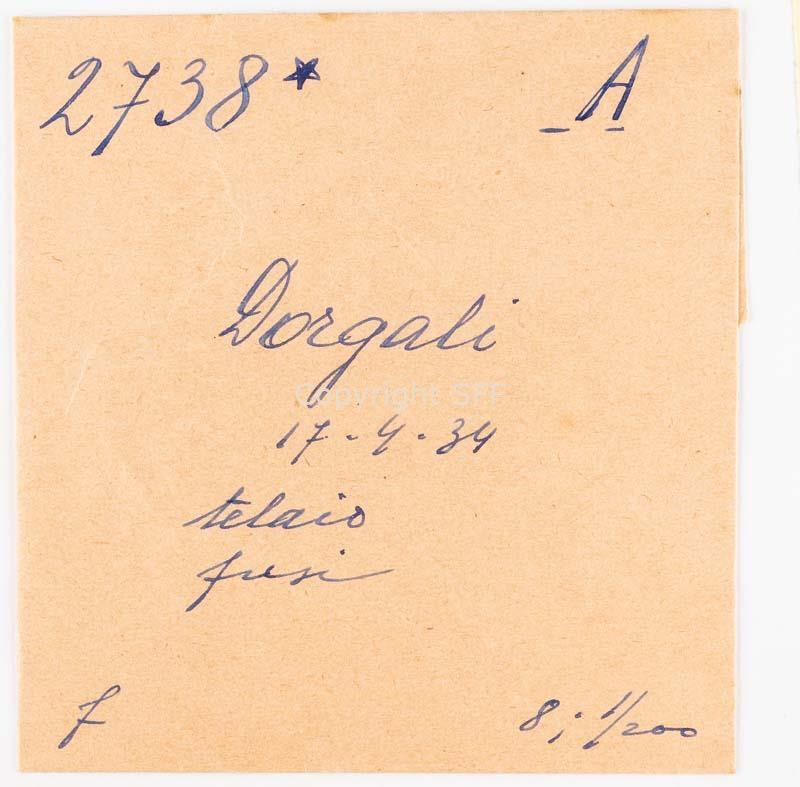 2738* A
Dorgali
Copyright SFF
17-4-34
telaio
fusi
f 8; 1/200